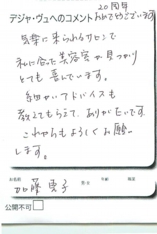 20周年
デジャ・ヴュへのコメント おめでとうございます
気楽に来られるサロンで
私に合った美容室が見つかり
とても喜んでいます。
細かいアドバイスも
教えてもらえて、ありがたいです
これからもよろしくお願い
します。
お名前
加藤 恵子
公開不可